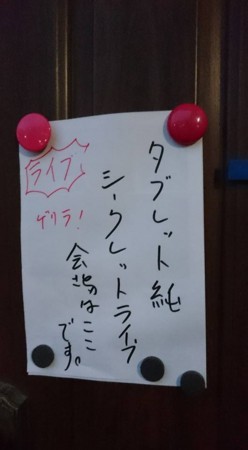 タブレット純
シークレットライブ
会場はここ
です。
ライブ
ゲリラ!